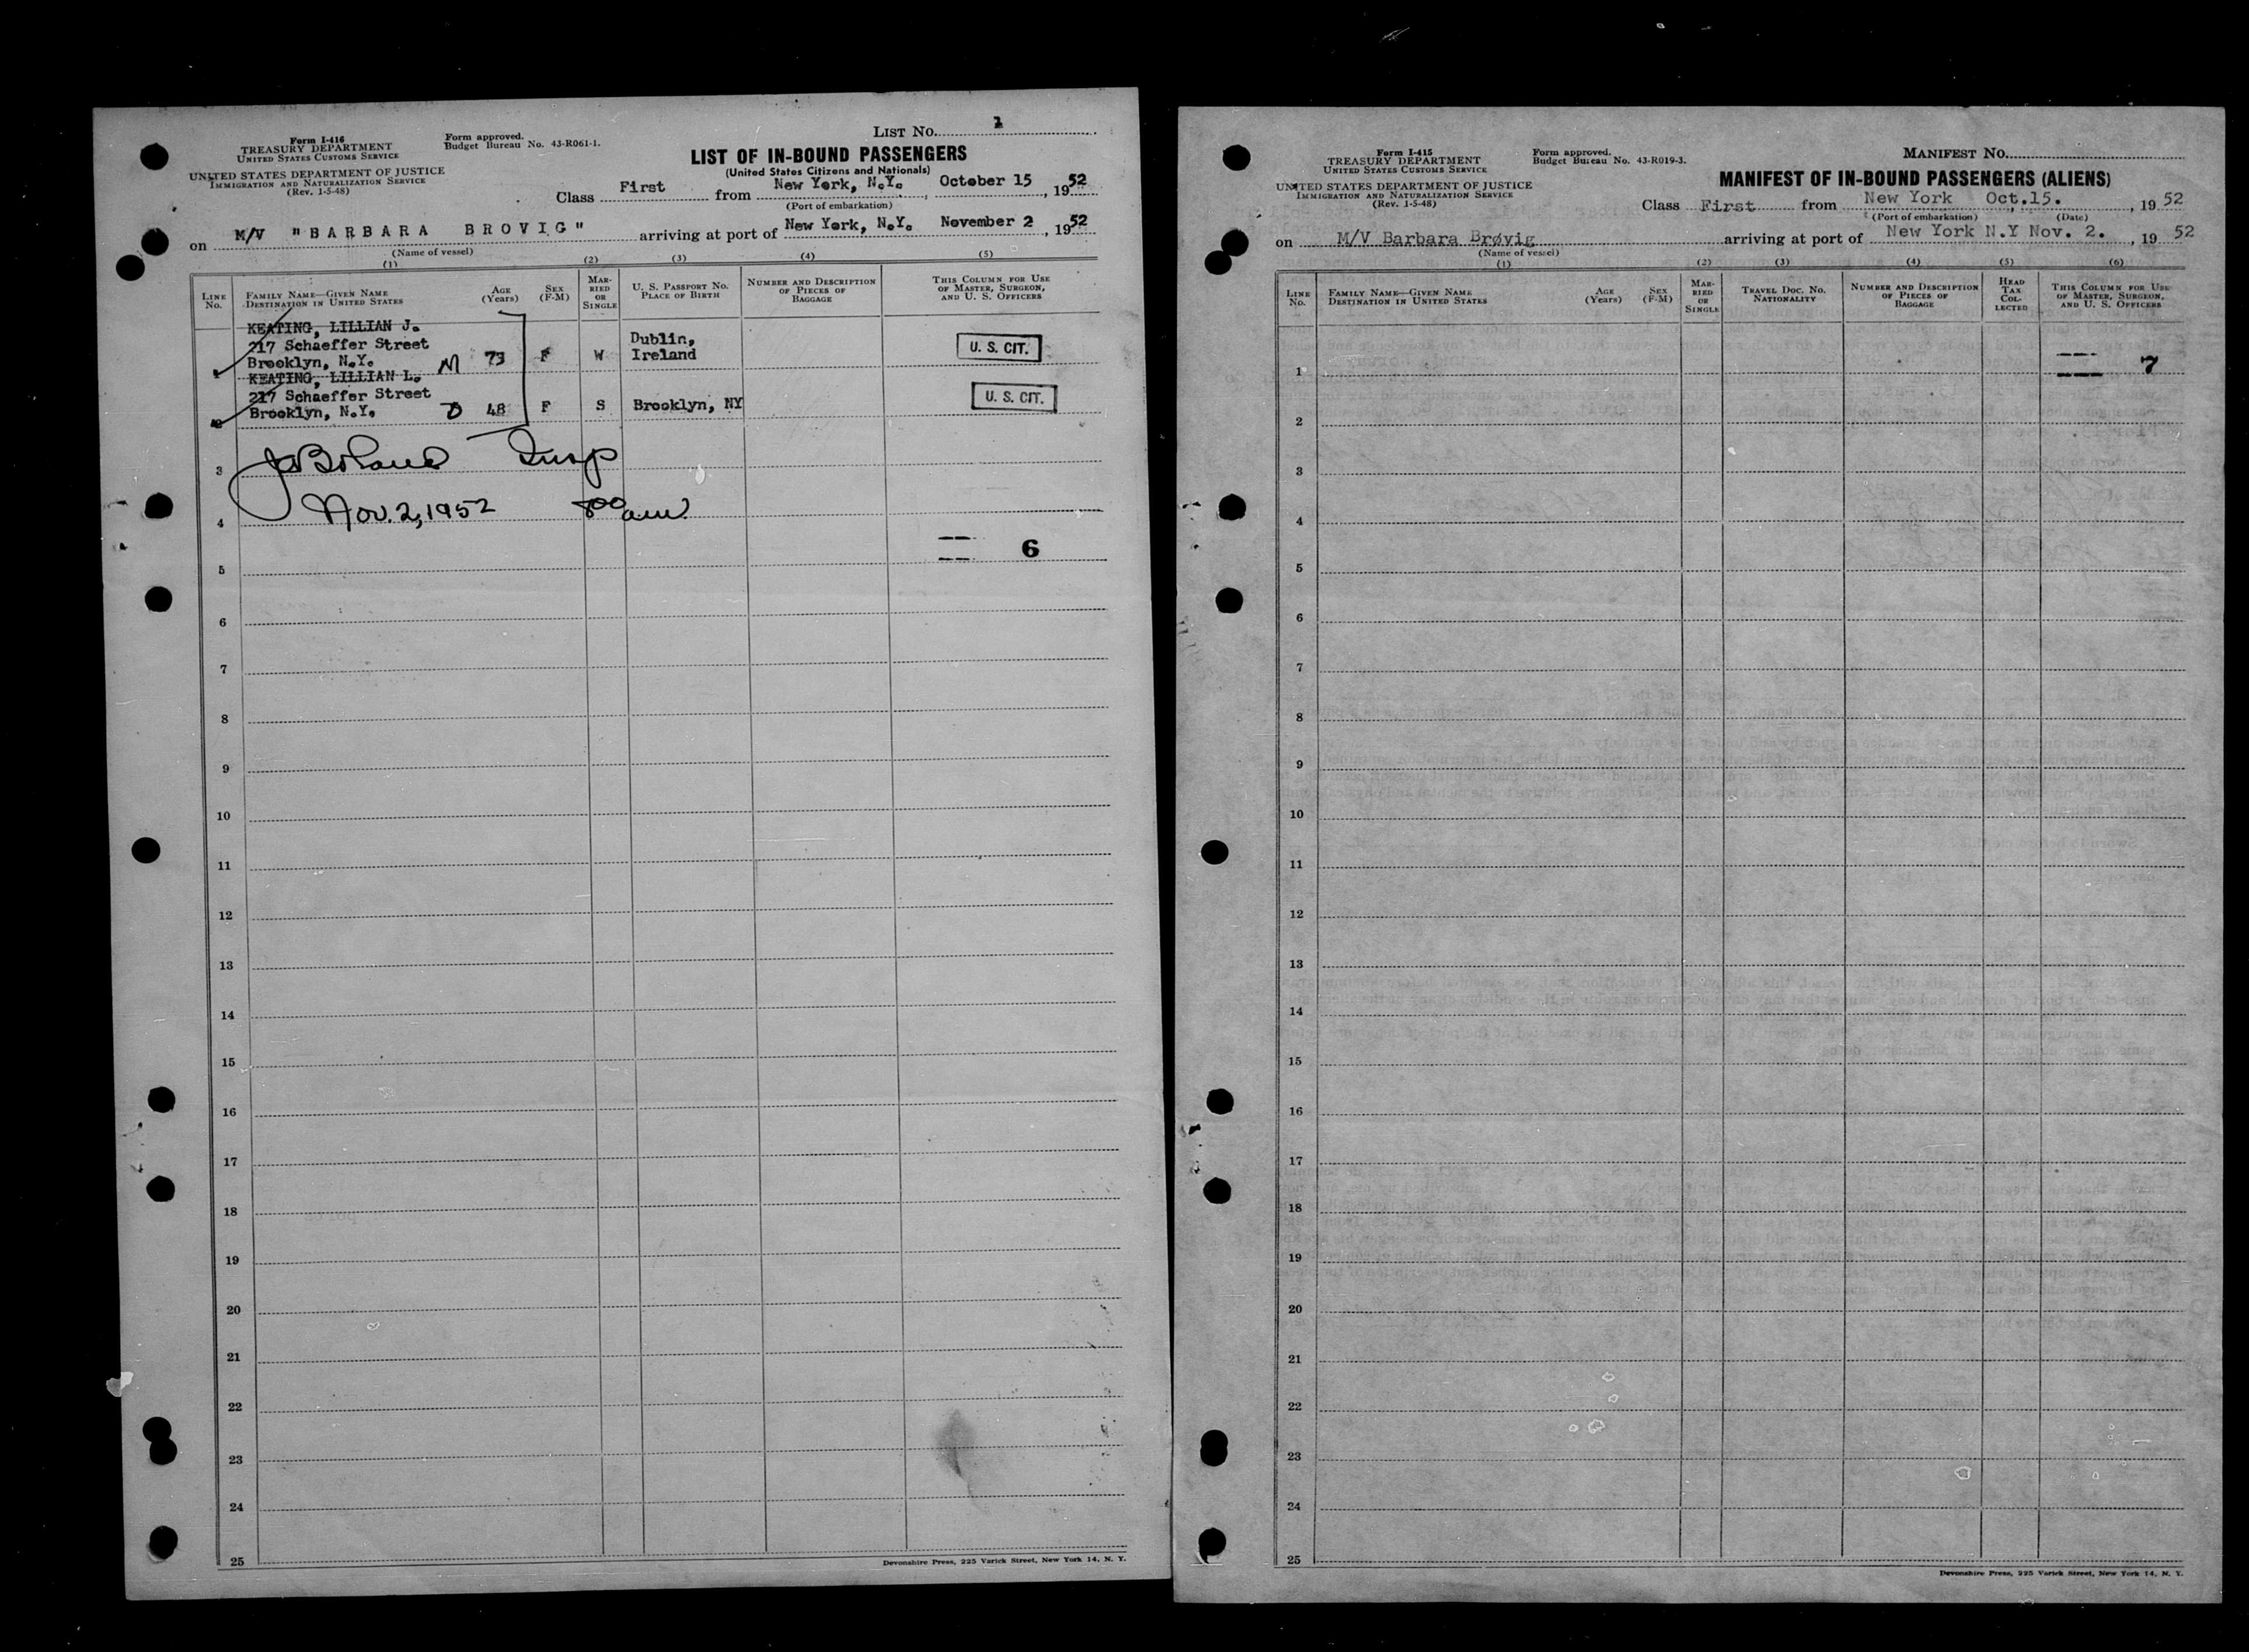 Form I-416
TREASURY DEPARTMENT
UNITED STATES CUSTOMS SERVICE
UNITED STATES DEPARTMENT OF JUSTICE
IMMIGRATION AND NATURALIZATION SERVICE
(Rev. 1-5-48)
Form approved.
Budget Bureau No. 43-R061-1.
LIST NO. 1
LIST OF IN-BOUND PASSENGERS
(United States Citizens and Nationals)
Class First from New York, N.Y., October 15, 1952
(Port of embarkation)
on M/V "BARBARA BROVIG" arriving at port of New York, N.Y. November 2, 1952
(Name of vessel)
(1) (2) (3) (4) (5)
LINE NO.
FAMILY NAME—GIVEN NAME
DESTINATION IN UNITED STATES
AGE (Years)
SEX (F-M)
MARRIED OR SINGLE
U. S. PASSPORT NO.
PLACE OF BIRTH
NUMBER AND DESCRIPTION OF PIECES OF BAGGAGE
THIS COLUMN FOR USE OF MASTER, SURGEON, AND U. S. OFFICERS
KEATING, LILLIAN J.
217 Schaeffer Street Dublin,
Brooklyn, N.Y. M 73 F W Ireland U. S. CIT.
1
KEATING, LILLIAN L.
217 Schaeffer Street
Brooklyn, N.Y. D 48 F S Brooklyn, NY U. S. CIT.
2
3 Insp
4 Nov. 2, 1952 8 00 am.
6
5
6
7
8
9
10
11
12
13
14
15
16
17
18
19
20
21
22
23
24
25
Devonshire Press, 225 Varick Street, New York 14, N. Y.
Form I-415
TREASURY DEPARTMENT
UNITED STATES CUSTOMS SERVICE
UNITED STATES DEPARTMENT OF JUSTICE
IMMIGRATION AND NATURALIZATION SERVICE
(Rev. 1-5-48)
Form approved.
Budget Bureau No. 43-R019-3.
MANIFEST NO.
MANIFEST OF IN-BOUND PASSENGERS (ALIENS)
Class First from New York Oct.15., 19 52
(Port of embarkation) (Date)
on M/V Barbara Brøvig arriving at port of New York N.Y Nov. 2., 19 52
(Name of vessel)
(1) (2) (3) (4) (5) (6)
LINE NO.
FAMILY NAME—GIVEN NAME
DESTINATION IN UNITED STATES
AGE (Years)
SEX (F-M)
MARRIED OR SINGLE
TRAVEL DOC. NO.
NATIONALITY
NUMBER AND DESCRIPTION OF PIECES OF BAGGAGE
HEAD TAX COLLECTED
THIS COLUMN FOR USE OF MASTER, SURGEON, AND U. S. OFFICERS
1 7
2
3
4
5
6
7
8
9
10
11
12
13
14
15
16
17
18
19
20
21
22
23
24
25
Devonshire Press, 225 Varick Street, New York 14, N. Y.